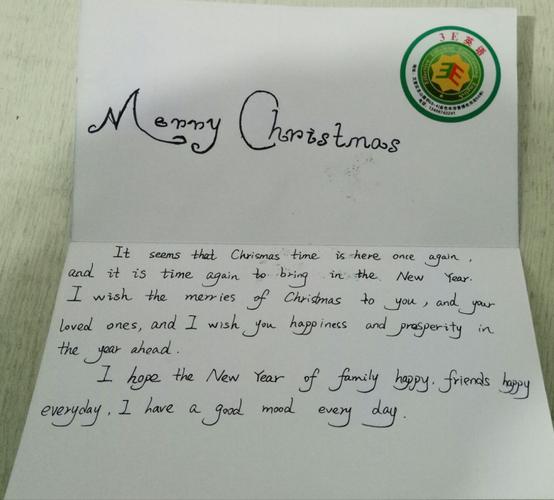 3E英语
3E
Merry Christmas
It seems that Chrismas time is here once again,
and it is time again to bring in the New Year.
I wish the merries of Christmas to you, and your
loved ones, and I wish you happiness and prosperity in
the year ahead.
I hope the New Year of family happy. friends happy
everyday, I have a good mood every day.